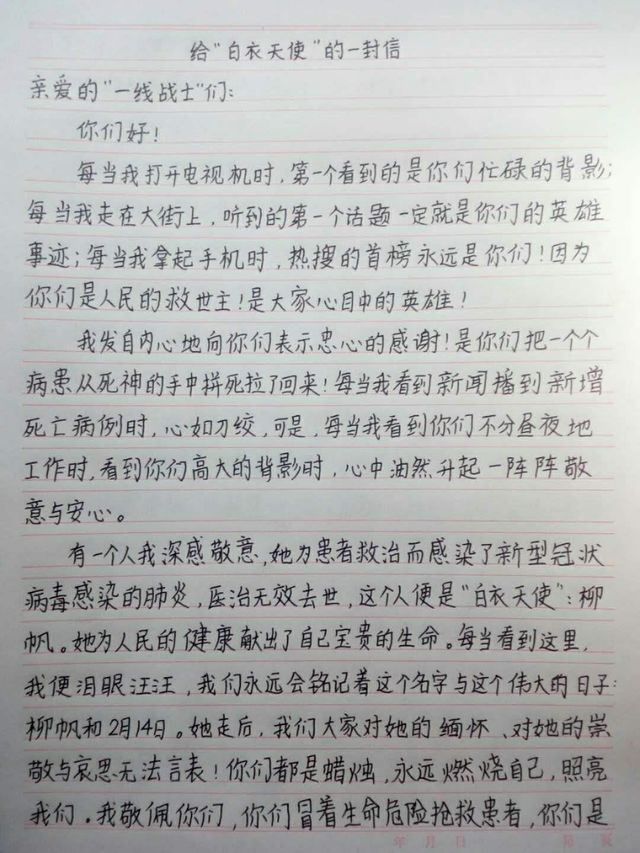 给“白衣天使”的一封信
亲爱的“一线战士”们:
你们好!
每当我打开电视机时,第一个看到的是你们忙碌的背影;
每当我走在大街上,听到的第一个话题一定就是你们的英雄
事迹;每当我拿起手机时,热搜的首榜永远是你们!因为
你们是人民的救世主!是大家心目中的英雄!
我发自内心地向你们表示忠心的感谢!是你们把一个个
病患从死神的手中拼死拉了回来!每当我看到新闻播到新增
死亡病例时,心如刀绞,可是,每当我看到你们不分昼夜地
工作时,看到你们高大的背影时,心中油然升起一阵阵敬
意与安心。
有一个人我深感敬意,她为患者救治而感染了新型冠状
病毒感染的肺炎,医治无效去世,这个人便是“白衣天使”:柳
帆。她为人民的健康献出了自己宝贵的生命。每当看到这里,
我便泪眼汪汪,我们永远会铭记着这个名字与这个伟大的日子:
柳帆和2月14日。她走后,我们大家对她的缅怀、对她的崇
敬与哀思无法言表!你们都是蜡烛,永远燃烧自己,照亮
我们.我敬佩你们,你们冒着生命危险抢救患者,你们是
年 月 日